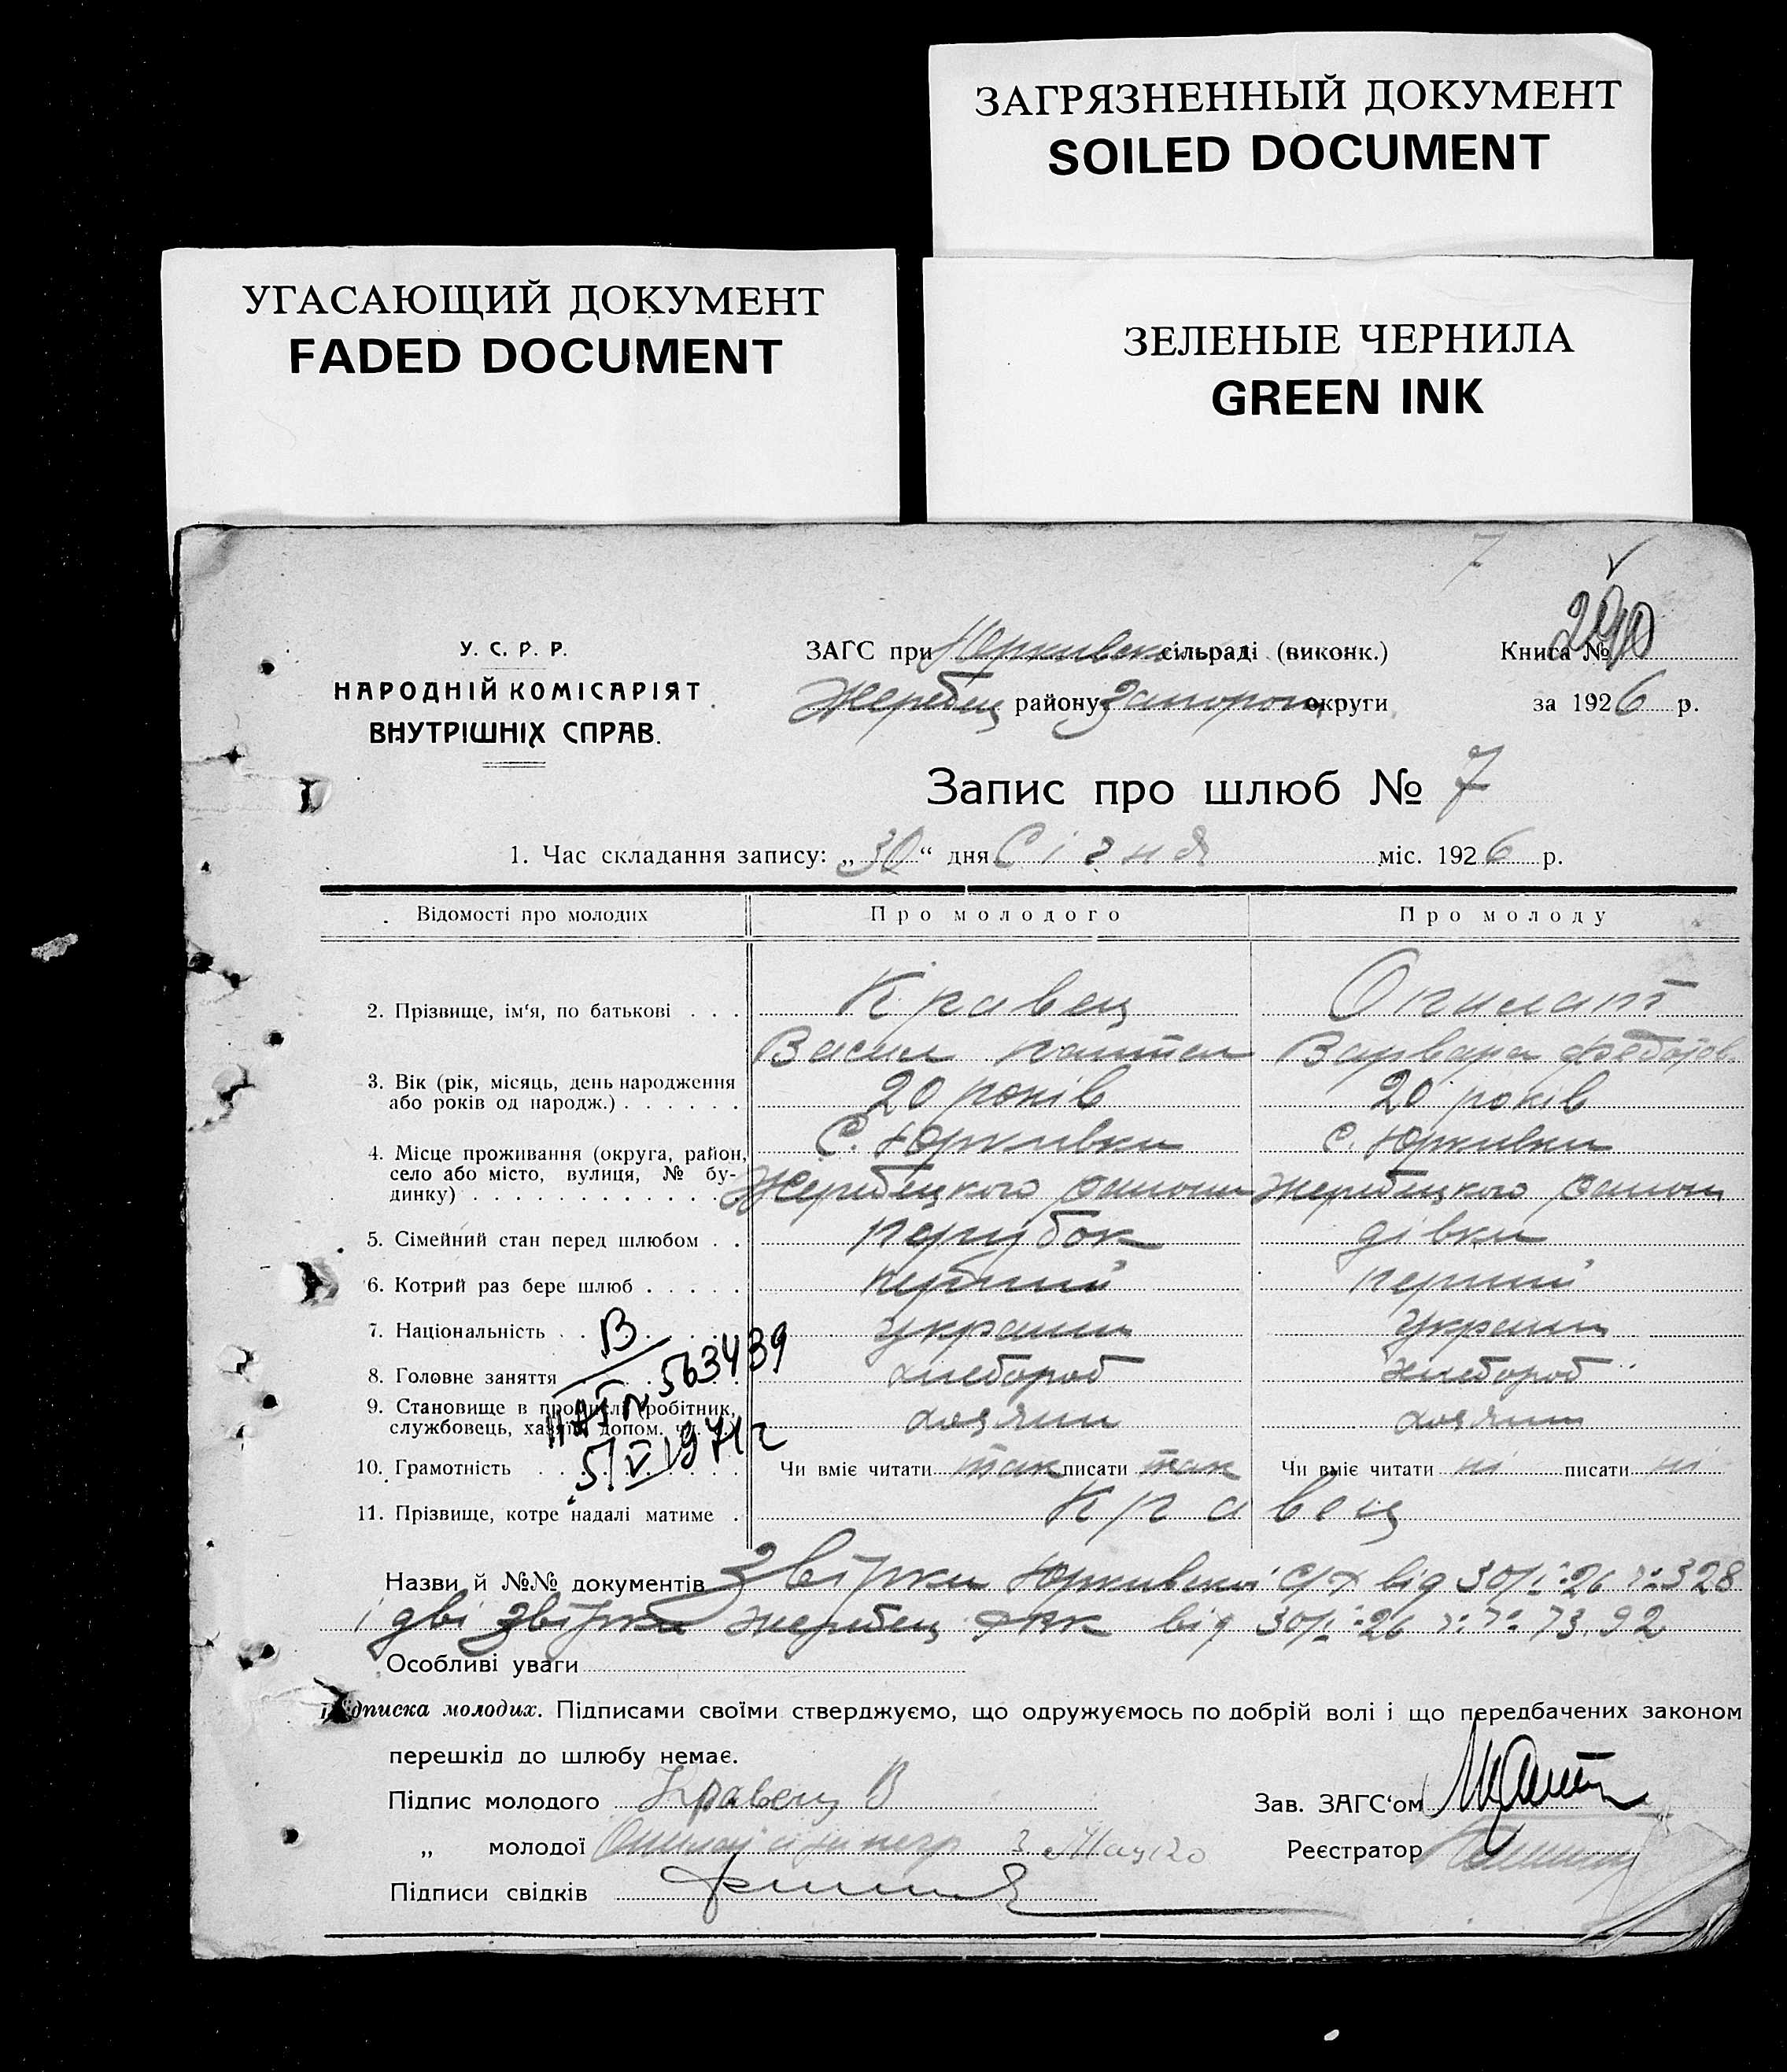 ЗАГРЯЗНЕННЫЙ ДОКУМЕНТ
SOILED DOCUMENT
УГАСАЮЩИЙ ДОКУМЕНТ
FADED DOCUMENT
ЗЕЛЕНЫЕ ЧЕРНИЛА
GREEN INK
7
290
У. С. Р. Р.
НАРОДНІЙ КОМІСАРІЯТ
ВНУТРІШНІХ СПРАВ.
ЗАГС при Юрківськ сільраді (виконк.) Книга №
Жеребец району Запорож округи за 1926 р.
Запис про шлюб № 7
1. Час складання запису: „30“ дня Січня міс. 1926 р.
Відомості про молодих Про молодого Про молоду
2. Прізвище, ім'я, по батькові Кравец
Васил Варвара
3. Вік (рік, місяць, день народження
або років од народж.) 20 років 20 років
С. Юрківка с. Юрківка
4. Місце проживання (округа, район,
село або місто, вулиця, № бу-
динку) Жеребецкого району Жеребецкого району
5. Сімейний стан перед шлюбом парубок дівка
6. Котрий раз бере шлюб перший перший
7. Національність україн україн
8. Головне заняття хлебороб хлебороб
9. Становище в промислі (робітник,
службовець, хазяїн, допом. хозяин хозяин
В
563439
5/V 1971 г
10. Грамотність Чи вміє читати так писати так Чи вміє читати ні писати ні
11. Прізвище, котре надалі матиме Кравец
Назви й №№ документів Звірка Юрківської від 30/I-26 328
і дві звірки Жеребец від 30/I-26 73, 92
Особливі уваги
Підписка молодих. Підписами своїми стверджуємо, що одружуємось по добрій волі і що передбачених законом
перешкід до шлюбу немає.
Підпис молодого Кравец В Зав. ЗАГС'ом
„ молодої Реєстратор
Підписи свідків